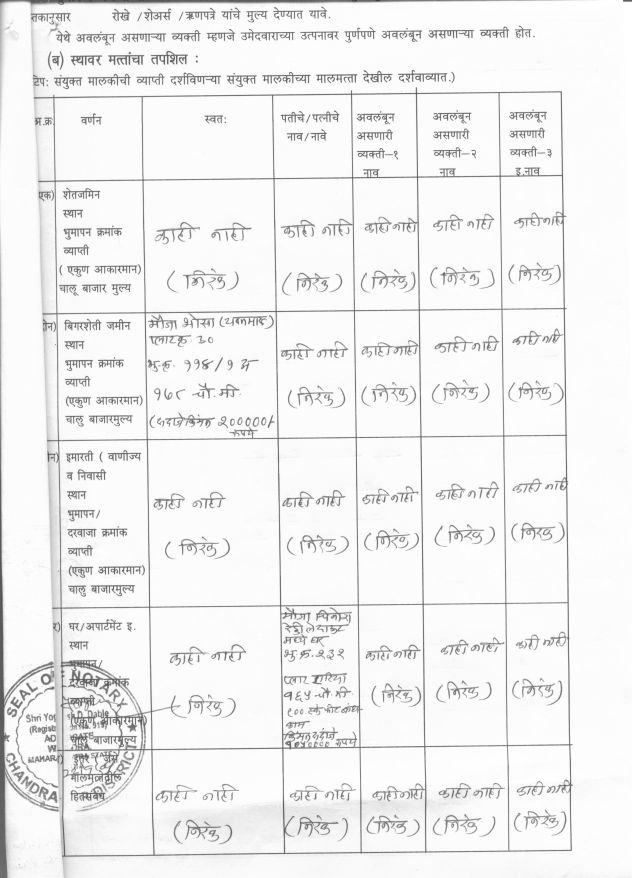 तकानुसार रोखे /शेअर्स /ऋणपत्रे यांचे मुल्य देण्यात यावे.
येथे अवलंबून असणाऱ्या व्यक्ती म्हणजे उमेदवाराच्या उत्पनावर पुर्णपणे अवलंबून असणाऱ्या व्यक्ती होत.
(ब) स्थावर मत्तांचा तपशिल :
टिप: संयुक्त मालकीची व्याप्ती दर्शविणऱ्या संयुक्त मालकीच्या मालमत्ता देखील दर्शवाव्यात.)
अ.क्र. वर्णन स्वतः पतीचे/पत्नीचे नाव/नावे अवलंबून असणारी व्यक्ती-१ नाव अवलंबून असणारी व्यक्ती-२ नाव अवलंबून असणारी व्यक्ती-३ इ.नाव
एक) शेतजमिन
स्थान
भुमापन क्रमांक
व्याप्ती
( एकुण आकारमान)
चालू बाजार मुल्य
काही नाही काही नाही काही नाही काही नाही काही नाही
(निरंक) (निरंक) (निरंक) (निरंक) (निरंक)
ोन) बिगरशेती जमीन
स्थान
भुमापन क्रमांक
व्याप्ती
(एकुण आकारमान)
चालु बाजारमुल्य
मौजा भोसा
प्लाट क्र. 30
भु.क्र. ११४/१
१६८ चौ.मी.
200000/-
रुपये
काही नाही काही नाही काही नाही काही नाही
(निरंक) (निरंक) (निरंक) (निरंक)
ीन) इमारती ( वाणीज्य
व निवासी
स्थान
भुमापन/
दरवाजा क्रमांक
व्याप्ती
(एकुण आकारमान)
चालु बाजारमुल्य
काही नाही काही नाही काही नाही काही नाही काही नाही
(निरंक) (निरंक) (निरंक) (निरंक) (निरंक)
र) घर/अपार्टमेंट इ.
स्थान
भुमापन/
दरवाजा क्रमांक
व्याप्ती
(एकुण आकारमान)
चालु बाजारमुल्य
काही नाही
(निरंक)
मौजा
मध्ये घर
भु.क्र. २३२
१६५ चौ.मी.
रुपये
काही नाही काही नाही काही नाही
(निरंक) (निरंक) (निरंक)
इतर ( जसे
मालमत्तेतील
हितसंबंध
काही नाही काही नाही काही नाही काही नाही काही नाही
(निरंक) (निरंक) (निरंक) (निरंक) (निरंक)
SEAL OF NOTARY
D. Dable
DISTRICT